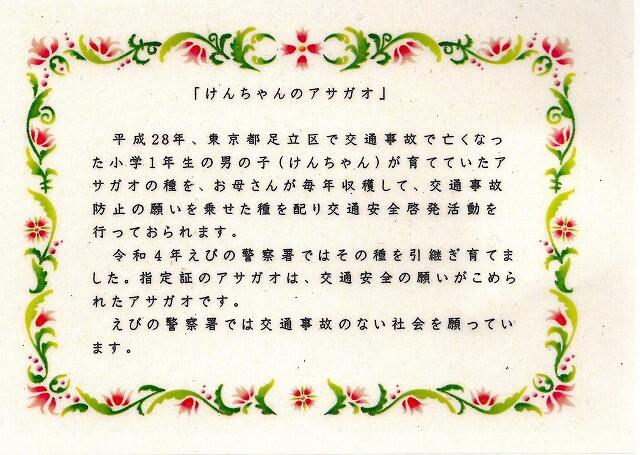 「けんちゃんのアサガオ」
平成28年、東京都足立区で交通事故で亡くなっ
た小学1年生の男の子(けんちゃん)が育てていたア
サガオの種を、お母さんが毎年収穫して、交通事故
防止の願いを乗せた種を配り交通安全啓発活動を
行っておられます。
令和4年えびの警察署ではその種を引継ぎ育てま
した。指定証のアサガオは、交通安全の願いがこめら
れたアサガオです。
えびの警察署では交通事故のない社会を願ってい
ます。